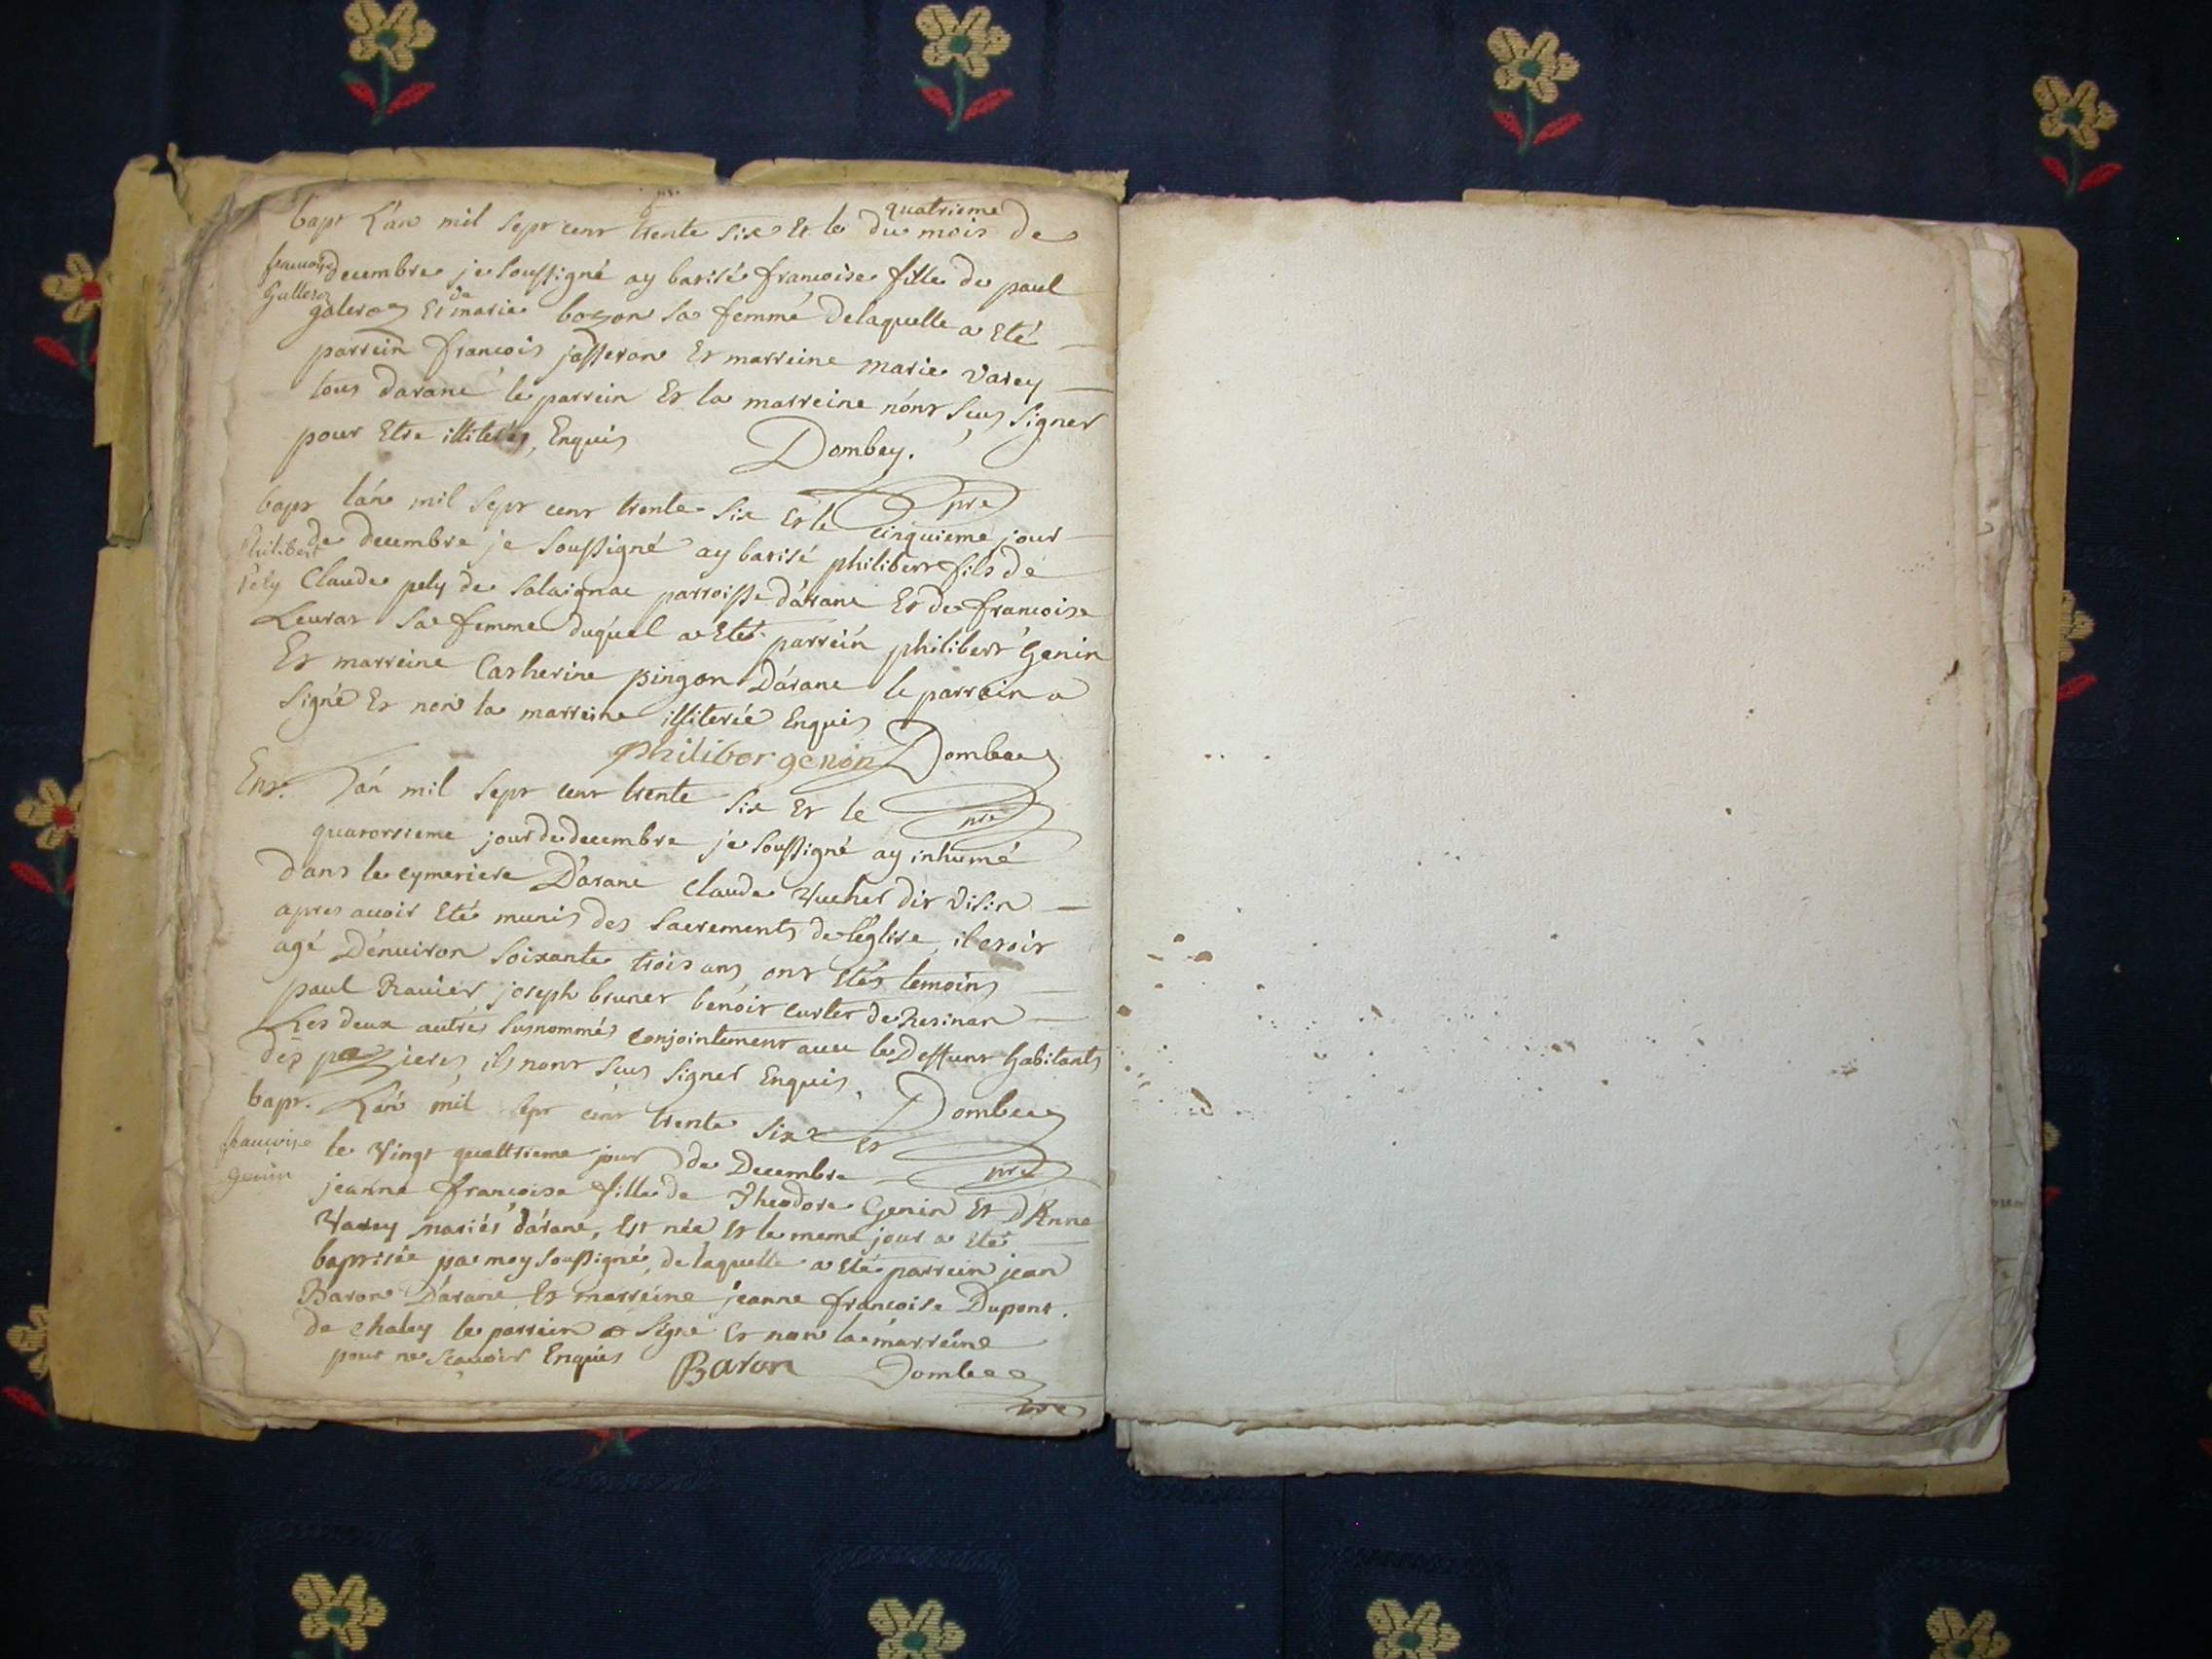 quatrieme
bapt L'an mil sept cent trente six Et le du mois de
francoise decembre je soussigné ay batisé francoise fille de paul
Gulleroz galeroz Et de marie bozon sa femme de laquelle a Eté
parrein francois josseron Et marreine marie Varey
tous darane le parrein Et la marreine n'ont sçus signer
pour Etre illiterés, Enquis Dombey.
pre
bapt lan mil sept cent trente six Et le cinquieme jour
philibert de decembre je soussigné ay batisé philibert fils de
pely Claude pely de salaignac parroisse d'arane Et de francoise
Leurat sa femme duquel a Eté parrein philibert Genin
Et marreine Catherine pingon D'arane le parrein a
signé Et non la marreine illiterée Enquis
philiber genin Dombey
pre
Ent. L'an mil sept cent trente six Et le
quatorsieme jour de decembre je soussigné ay inhumé
dans le cymetiere D'arane Claude Vucher dit Visin
apres avoir Eté munis des sacrements de l'église, il etoit
agé D'environ soixante trois ans, ont Etés temoins
paul Ravier joseph brunet benoit curlet de Resinan
Les deux autres susnommés conjointement avec le Deffunt habitants
des pezieres, ils n'ont sçus signer Enquis. Dombey
pre
bapt. L'an mil sept cent trente six Et
francoise le Vingt quattrieme jour de Decembre
genin jeanne francoise fille de Theodore Genin Et D'Anne
Varey mariés d'arane, Est née Et le meme jour a Eté
baptisée par moy soussigné, de laquelle a Eté parrein jean
Baron D'arane Et marreine jeanne francoise Dupont.
de chaley le parrein a signé Et non la marreine
pour ne sçavoir Enquis Baron Dombey
pre